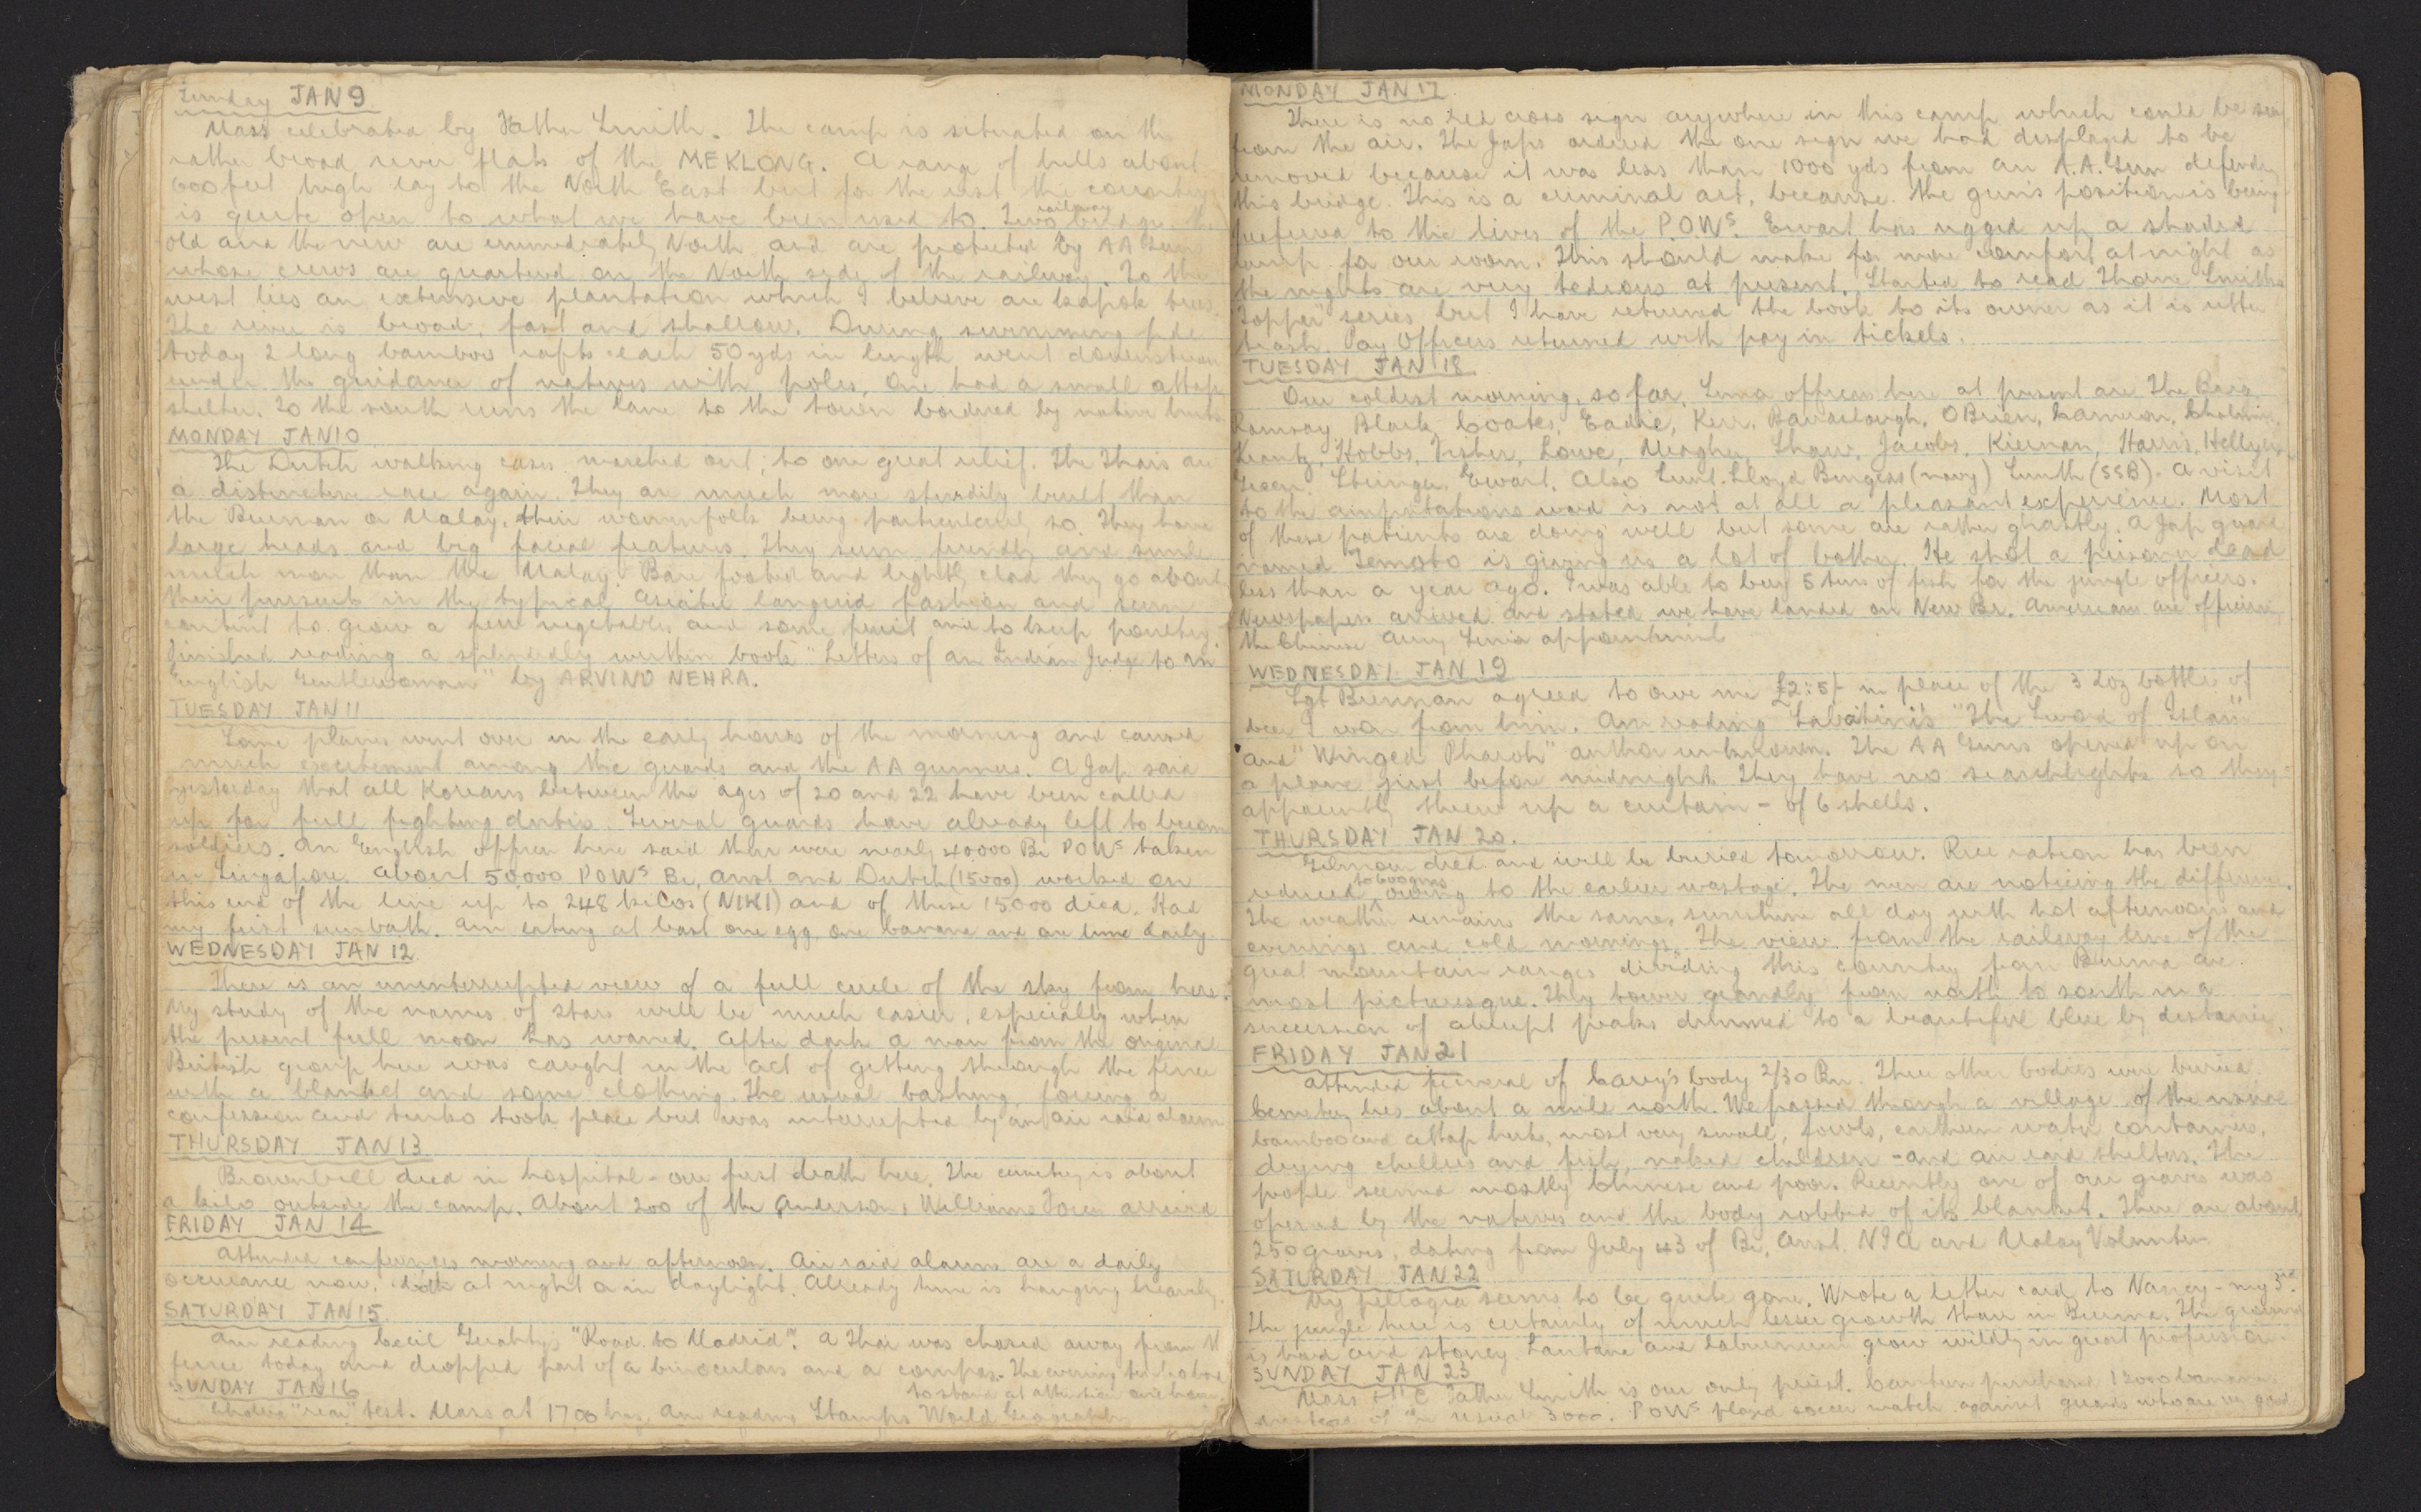 Sunday JAN 9
Mass celebrated by Father Smith. The camp is situated on the
rather broad river flats of the MEKLONG. A range of hills about
600 feet high lay to the North East but for the rest the country
is quite open to what we have been used to. Two railway bridges the
old and the new are immediately North and are protected by AA Guns
whose crews are quartered on the North side of the railway. To the
west lies an extensive plantation which I believe are kapok trees.
The river is broad, fast and shallow. During swimming pde
today 2 long bamboo rafts each 50 yds in length went downstream
under the guidance of natives with poles. One had a small attap
shelter. To the south runs the lane to the town bordered by native huts.
MONDAY JAN 10
The Dutch walking cases marched out, to our great relief. The Thais are
a distinctive race again. They are much more sturdily built than
the Burman or Malay, their womenfolk being particularly so. They have
large heads and big facial features. They seem friendly and smile
much more than the Malay. Bare footed and lightly clad they go about
their pursuits in the typical Asiatic languid fashion and seem
content to grow a few vegetables and some fruit and to keep poultry.
Finished reading a splendidly written book "Letters of an Indian Judge to an
English Gentlewoman" by ARVIND NEHRA.
TUESDAY JAN 11
Some planes went over in the early hours of the morning and caused
much excitement among the guards and the AA gunners. A Jap said
yesterday that all Koreans between the ages of 20 and 22 have been called
up for full fighting duties. Several guards have already left to become
soldiers. An English officer here said there were nearly 40,000 Br POWs taken
in Singapore. About 50,000 POWs Br, Aust and Dutch (15000) worked on
this end of the line up to 248 kilos (NIKI) and of these 15,000 died. Had
my first sunbath. Am eating at least one egg, one banana and one lime daily.
WEDNESDAY JAN 12
There is an uninterrupted view of a full circle of the sky from here.
My study of the names of stars will be much easier, especially when
the present full moon has waned. After dark a man from the original
British group here was caught in the act of getting through the fence
with a blanket and some clothing. The usual bashing, forcing a
confession and tenko took place but was interrupted by an air raid alarm
THURSDAY JAN 13
Brownbill died in hospital - our first death here. The cemetery is about
a kilo outside the camp. About 200 of the Anderson, Williams Force arrived
FRIDAY JAN 14
Attended conferences morning and afternoon. Air raid alarms are a daily
occurance now, both at night & in daylight. Already time is hanging heavily.
SATURDAY JAN 15
Am reading Cecil Geraghty's "Road to Madrid". A Thai was chased away from the
fence today and dropped part of a binoculars and a compass. The evening tenko had
to stand at attention one hour.
SUNDAY JAN 16
Cholera "rear" test. Mass at 1700 hrs. Am reading Stamps World Geography
MONDAY JAN 17
There is no red cross sign anywhere in this camp which could be seen
from the air. The Japs ordered the one sign we had displayed to be
removed because it was less than 1000 yds from an A.A. Gun defending
this bridge. This is a criminal act, because the guns position is being
preferred to the lives of the P.O.Ws. Ewart has rigged up a shaded
lamp for our room. This should make for more comfort at night as
the nights are very tedious at present. Started to read Thorne Smiths
Topper series but I have returned the book to its owner as it is utter
trash. Pay Officers returned with pay in tickels.
TUESDAY JAN 18
Our coldest morning, so far. Some officers here at present are The Brig.
Ramsay, Black, Coates, Eadie, Kerr, Barraclough, OBrien, Cameron, Chalmers,
Krantz, Hobbs, Fisher, Lowe, Meagher, Shaw, Jacobs, Kiernan, Harris, Hellyer,
Green, Stringer, Ewart. Also Lieut. Lloyd Burgess (navy) Smith (SSB). A visit
to the amputations ward is not at all a pleasant experience. Most
of these patients are doing well but some are rather ghastly. A Jap guard
named Temoto is giving us a lot of bother. He shot a prisoner dead
less than a year ago. I was able to buy 5 tins of fish for the jungle officers.
Newspapers arrived and stated we have landed on New Br. Americans are officering
the Chinese army Senior appointments
WEDNESDAY JAN 19
Sgt Brennan agreed to owe me £2:5/- in place of the 3 doz bottles of
beer I won from him. Am reading Sabatini's "The Sword of Islam"
and "Winged Pharoh" author unknown. The AA Guns opened up on
a plane just before midnight. They have no searchlights so they
apparently threw up a curtain - of 6 shells.
THURSDAY JAN 20.
Gilmour died and will be buried tomorrow. Rice ration has been
reduced to 600gms owing to the earlier wastage. The men are noticing the difference.
The weather remains the same, sunshine all day with hot afternoons and
evenings and cold mornings. The view from the railway line of the
great mountain ranges dividing this country from Burma are
most picturesque. They tower grandly from north to south in a
succession of abrupt peaks dimmed to a beautiful blue by distance.
FRIDAY JAN 21
Attended funeral of Carey's body 2/30 Bn. Three other bodies were buried.
Cemetery lies about a mile north. We passed through a village of the usual
bamboo and attap huts, most very small, fowls, earthern water containers,
drying chillies and fish, naked children - and air raid shelters. The
people seemed mostly Chinese and poor. Recently one of our graves was
opened by the natives and the body robbed of its blanket. There are about
250 graves, dating from July 43 of Br, Aust. NIA and Malay Volunteer
SATURDAY JAN 22
My pellagra seems to be quite gone. Wrote a letter card to Nancy - my 3rd.
The jungle here is certainly of much lesser growth than in Burma. The ground
is hard and stoney. Lantana and laburnum grow wildly in great profusion.
SUNDAY JAN 23
Mass & H.C. Father Smith is our only priest. Canteen purchased 12000 bananas
instead of the usual 3000. POWs played soccer match against guards who are very good